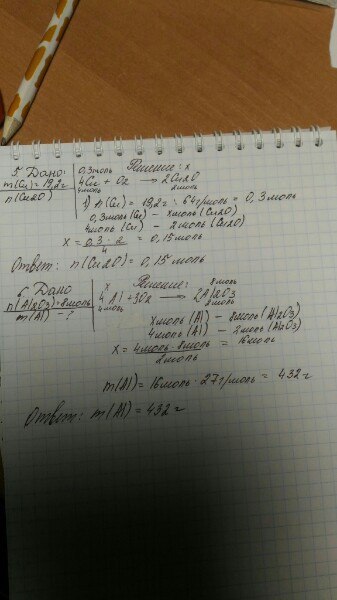 5. Дано:
m(Cu)=19,2г
n(Cu2O)
Решение:
0,3моль x
4Cu + O2 → 2Cu2O
4моль 2моль
1) n(Cu) = 19,2г : 64г/моль = 0,3моль
0,3моль(Cu) – xмоль(Cu2O)
4моль(Cu) – 2моль(Cu2O)
x = 0,3 · 2 / 4 = 0,15моль
Ответ: n(Cu2O) = 0,15моль
6. Дано
n(Al2O3)=8моль
m(Al) – ?
Решение:
x 8моль
4Al + 3O2 → 2Al2O3
4моль 2моль
xмоль(Al) – 8моль(Al2O3)
4моль(Al) – 2моль(Al2O3)
x = 4моль · 8моль / 2моль = 16моль
m(Al) = 16моль · 27г/моль = 432г
Ответ: m(Al) = 432г